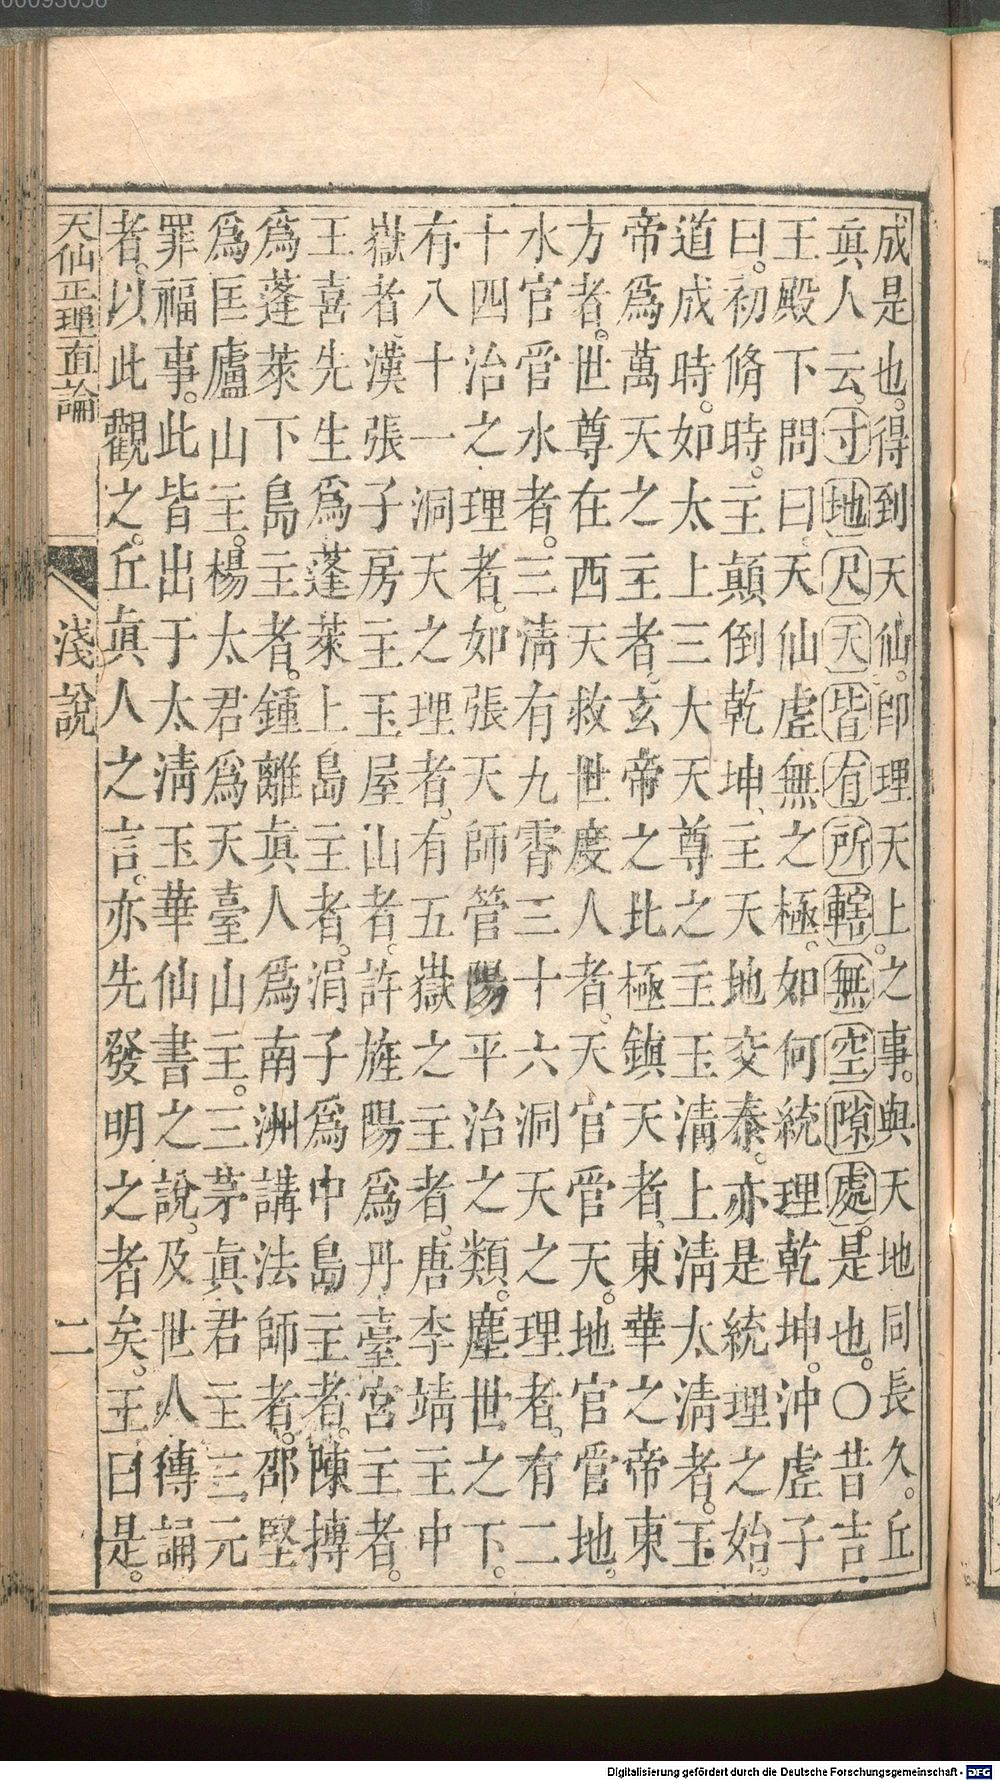 00093058
成是也。得到天仙。即理天上之事。與天地同長久。丘
眞人云。寸地尺天皆有所轄無空隙處。是也。〇昔吉
王殿下問曰天仙虛無之極。如何統理乾坤。沖虛子
曰。初脩時。主顛倒乾坤、主天地交泰。亦是統理之始。
道成時。如太上三大天尊之主玉清上清太清者。玉
帝爲萬天之主者。玄帝之北極鎮天者、東華之帝東
方者。世尊在西天救世度人者、天官管天。地官管地。
水官管水者。三清有九霄三十六洞天之理者、有二
十四治之理者。如張天師管陽平治之類。塵世之下。
有八十一洞天之理者。有五嶽之主者。唐李靖主中
嶽者、漢張子房主玉屋山者。許旌陽爲丹臺宮主者。
王喜先生爲蓬萊上島主者。涓子爲中島主者。陳摶
爲蓬萊下島主者。鍾離眞人爲南洲講法師者。邵堅
爲匡廬山主。楊太君爲天臺山主。三茅眞君主三元
罪福事。此皆出于太清玉華仙書之說。及世人傳誦
者。以此觀之。丘眞人之言。亦先發明之者矣。王曰是。
天仙正理直論 淺說 二
Digitalisierung gefördert durch die Deutsche Forschungsgemeinschaft - DFG